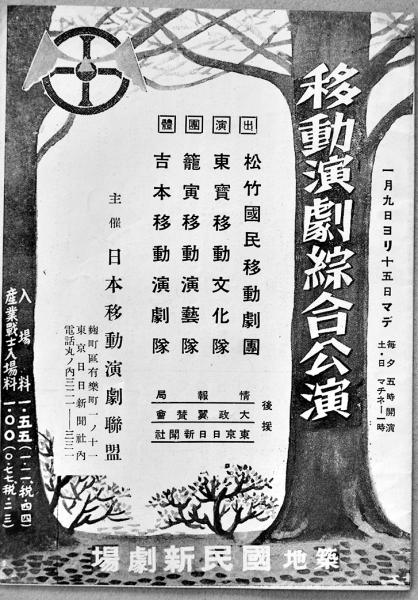 一月九日ヨリ十五日マデ
毎夕五時開演
土・日 マチネー一時
移動演劇綜合公演
出演團體
松竹國民移動劇團
東寶移動文化隊
籠寅移動演藝隊
吉本移動演劇隊
後援
情報局
大政翼賛會
東京日日新聞社
主催 日本移動演劇聯盟
麹町區有樂町一ノ十一
東京日日新聞社内
電話丸ノ内三二一——三三一
入場料 一・五五(一・一一、税・四四)
産業戰士入場料 一・〇〇(〇・七七税・二三)
築地 國民新劇場